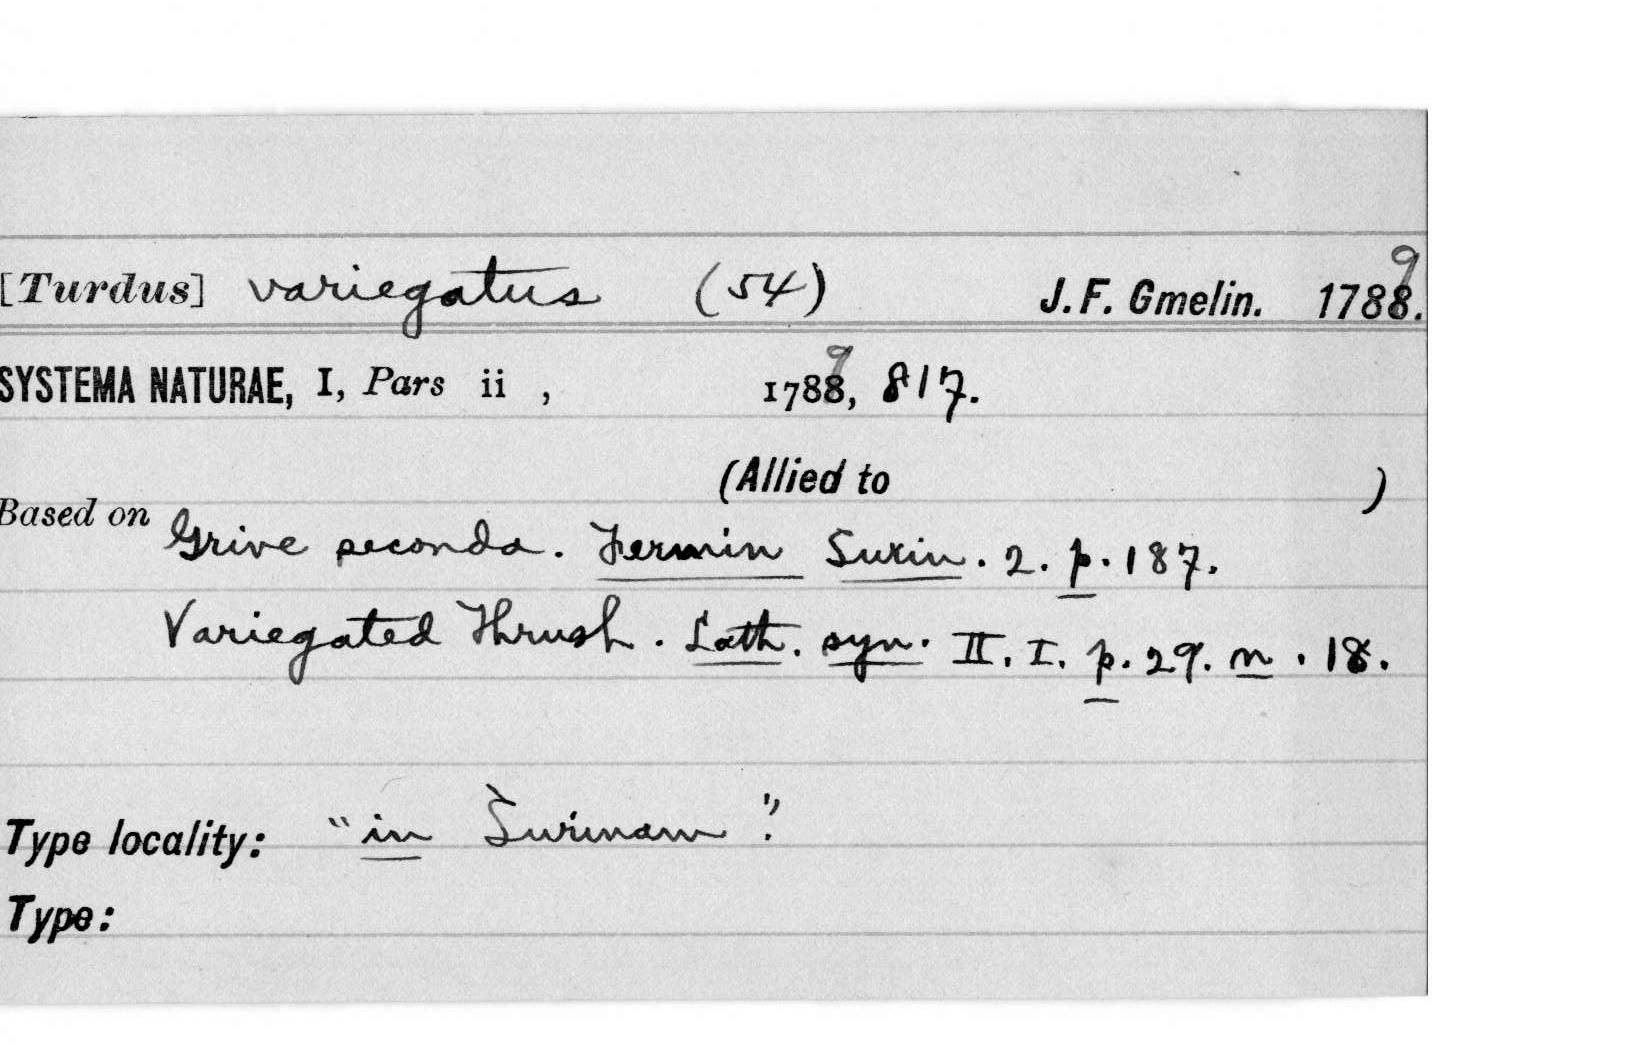 [Turdus] variegatus (54) J. F. Gmelin. 1788. 9
SYSTEMA NATURAE, I, Pars ii , 1788, 9 817.
(Allied to )
Based on Grive seconda. Fermin Surin. 2. p. 187.
Variegated Thrush. Lath. syn. II. I. p. 29. n. 18.
Type locality: "in Surinam".
Type: